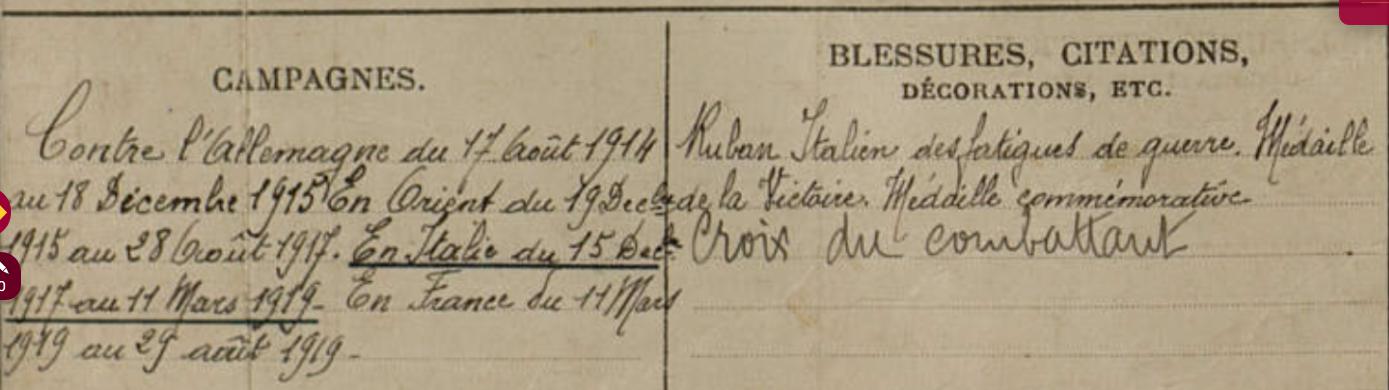 CAMPAGNES.
Contre l'Allemagne du 17 Août 1914
au 18 Décembre 1915 En Orient du 19 Decbre
1915 au 28 Août 1917. En Italie du 15 Decbre
1917 au 11 Mars 1919 - En France du 11 Mars
1919 au 29 août 1919 -
BLESSURES, CITATIONS,
DÉCORATIONS, ETC.
Ruban Italien des fatigues de guerre. Médaille
de la Victoire. Médaille commémorative
Croix du combattant